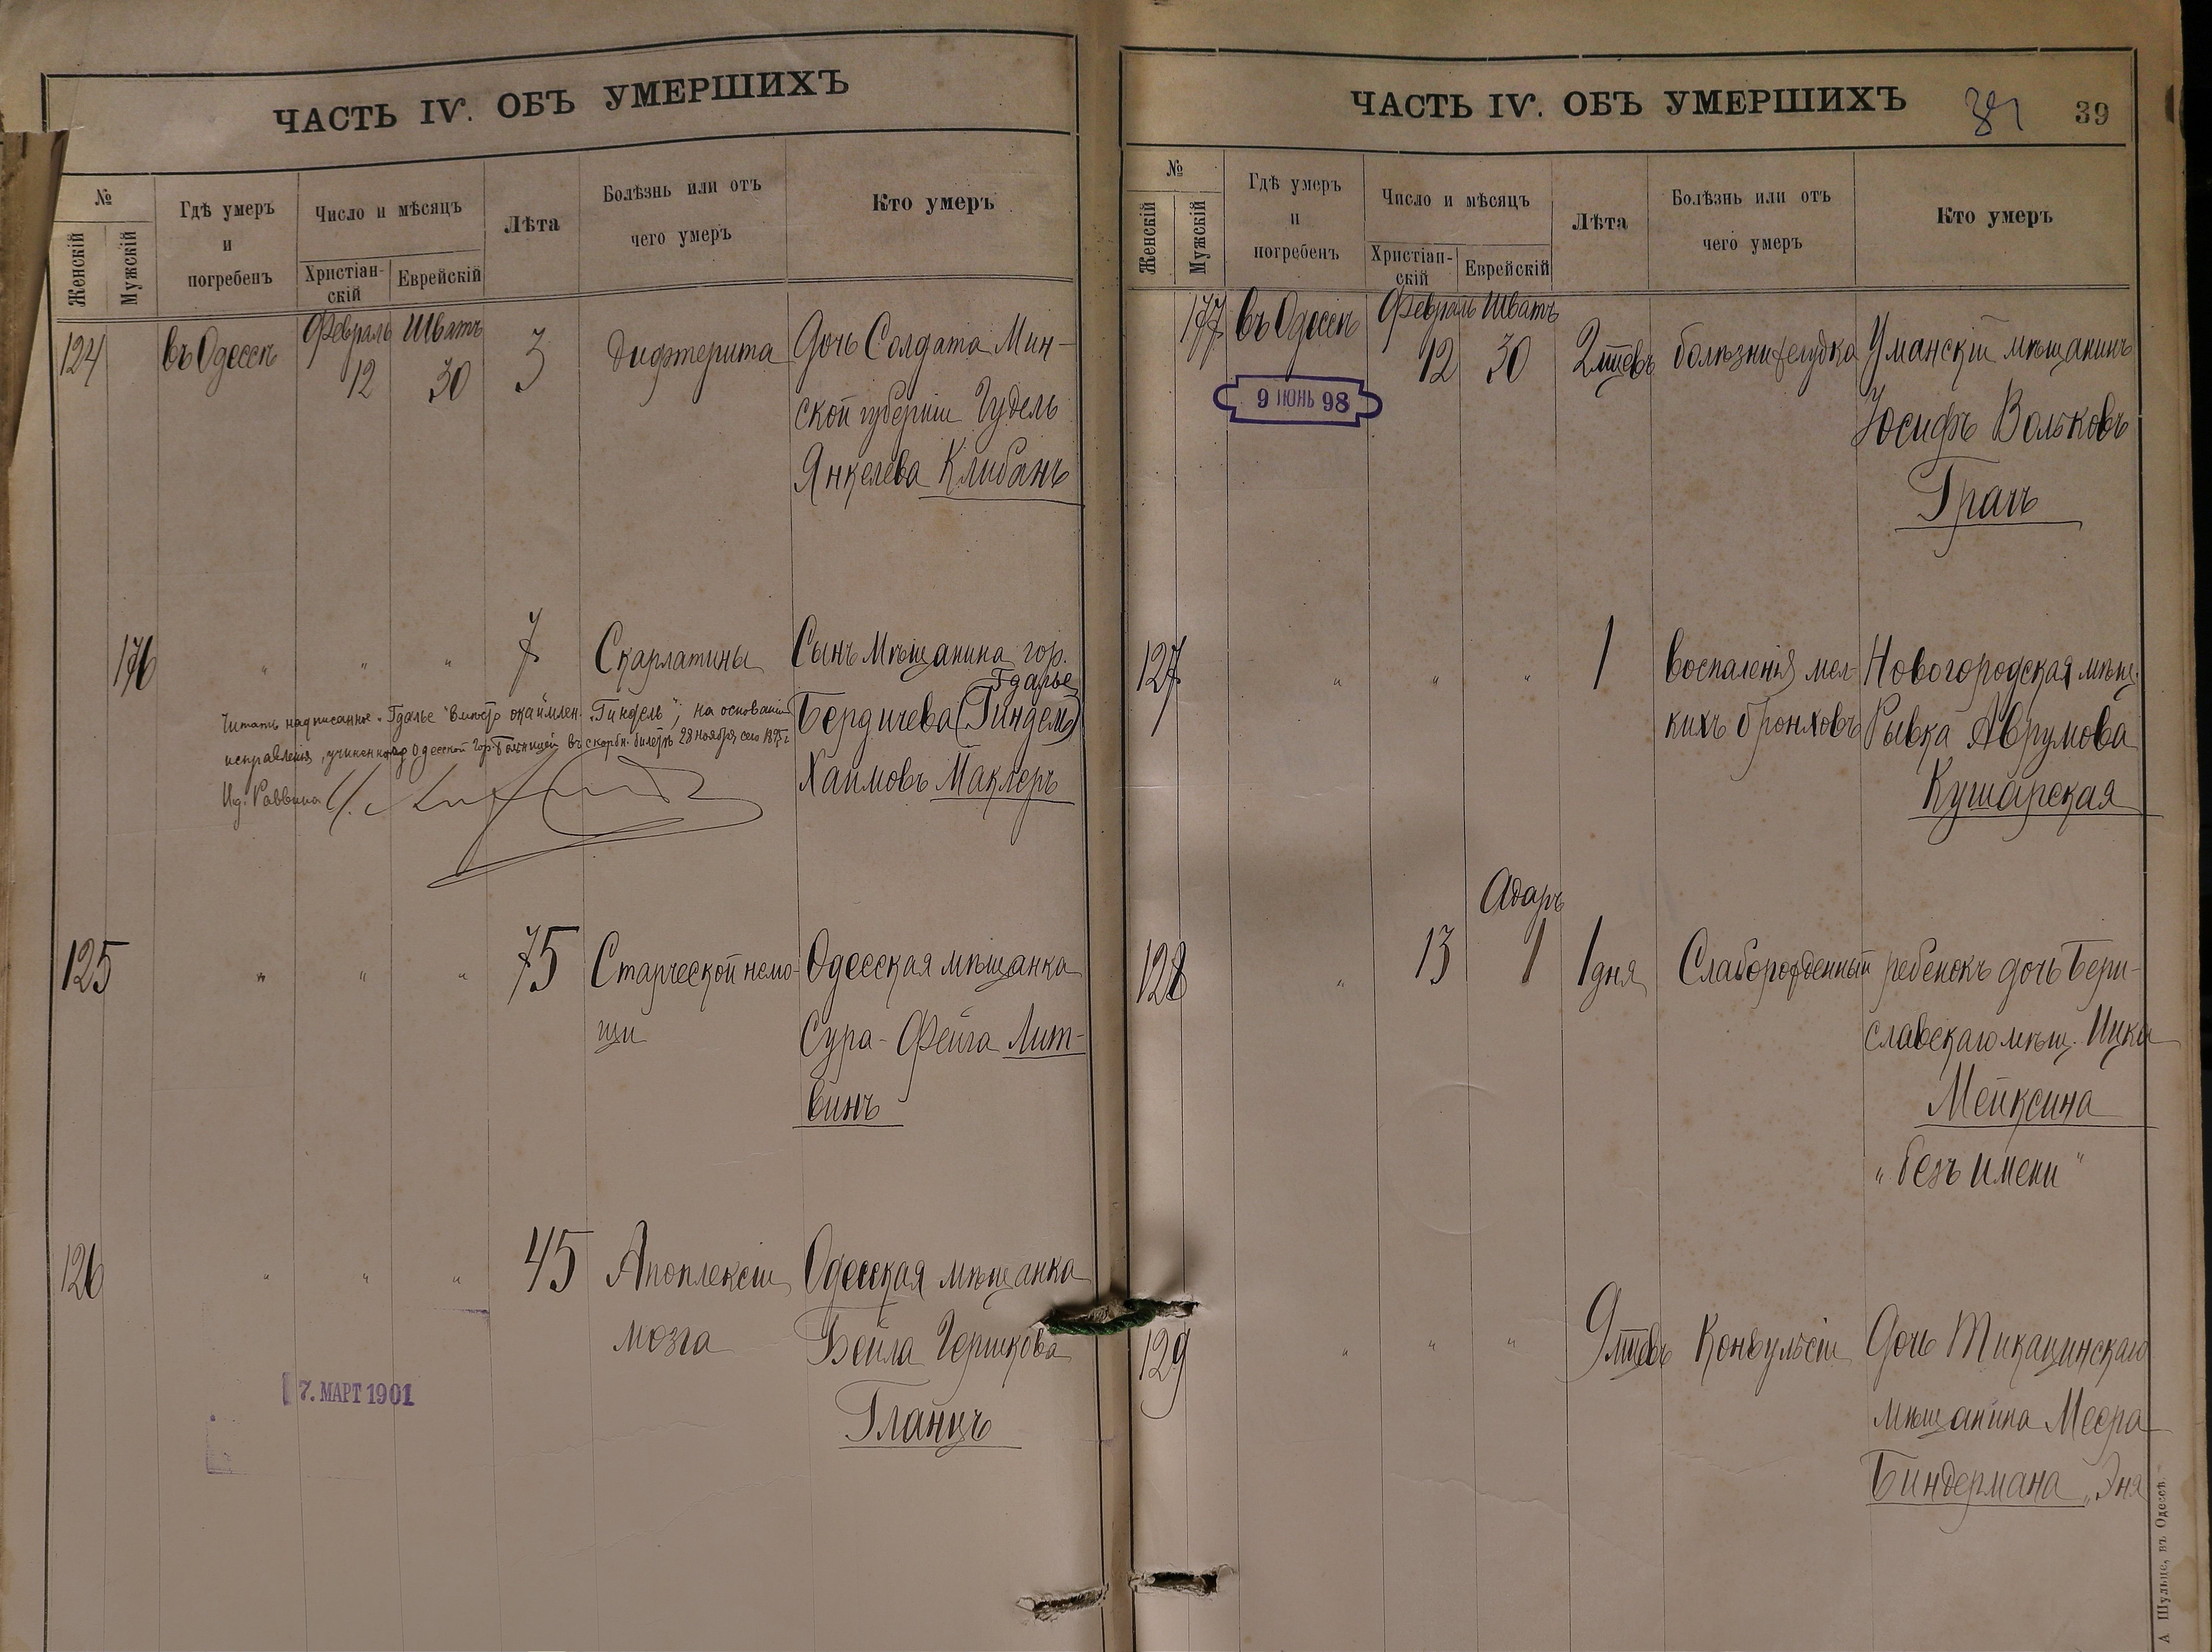 ЧАСТЬ IV. ОБЪ УМЕРШИХЪ
№
Женскій
Мужскій
Гдѣ умеръ
и
погребенъ
Число и мѣсяцъ
Христіан-
скій
Еврейскій
Лѣта
Болѣзнь или отъ
чего умеръ
Кто умеръ
124
въ Одессѣ
Февраль
12
Шватъ
30
3
дифтерита
Дочь Солдата Мин-
ской губерніи Гудель
Янкелева Клибанъ
176
" " "
7
Скарлатины
Сынъ Мѣщанина гор.
Гдалье
Бердичева (Гиндель)
Хаимовъ Маклеръ
Читать надписанное „Гдалье" вмѣсто окаймлен. „Гиндель", на основаніи
исправленія, учиненнаго Одесской Гор. Больницей въ скорбн. билетѣ 28 ноября сего 1895 г.
Ид. Раввина
125
" " "
75
Старческой немо-
щи
Одесская мѣщанка
Сура-Фейга Лит-
винъ
126
" " "
45
Апоплексіи
мозга
Одесская мѣщанка
Бейла Гершкова
Гланцъ
7. МАРТ 1901
ЧАСТЬ IV. ОБЪ УМЕРШИХЪ
39
39
№
Женскій
Мужскій
Гдѣ умеръ
и
погребенъ
Число и мѣсяцъ
Христіан-
скій
Еврейскій
Лѣта
Болѣзнь или отъ
чего умеръ
Кто умеръ
177
въ Одессѣ
Февраль
12
Шватъ
30
2 мцевъ
болѣзни желудка
Уманскій мѣщанинъ
Іосифъ Вольковъ
Грачъ
9 ІЮНЬ 98
127
" " "
1
воспаленія мел-
кихъ бронховъ
Новогородская мѣщ.
Рывка Аврумова
Кушарская
128
"
13
Адаръ
1
1 дня
Слаборожденный
ребенокъ дочь Бери-
славскаго мѣщ. Ицка
Мейксина
„безъ имени"
129
" " "
9 мцевъ
Конвульсіи
Дочь Тикацинскаго
мѣщанина Меера
Биндермана „Эня
А Шульце, въ Одессѣ.